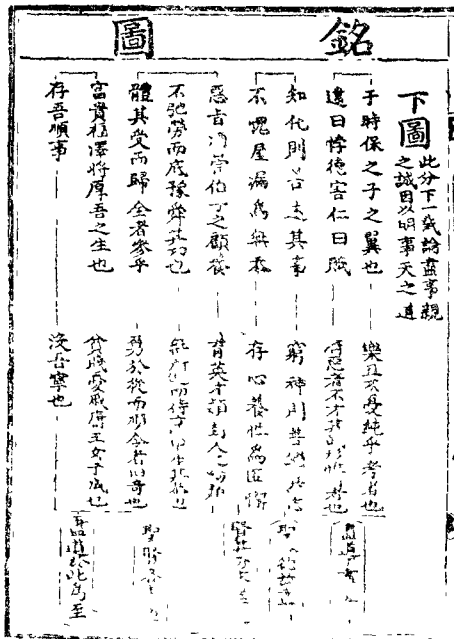 銘圖
下圖
此分下一截論盡事親
之誠因以明事天之道
于時保之子之翼也
樂且不憂純乎孝者也
違曰悖德害仁曰賊
惡者不才其踐形惟肖者也
知化則善述其事
窮神則善繼其志
不愧屋漏為無忝
存心養性為匪懈
惡旨酒崇伯子之顧養
育英才穎封人之錫類
不弛勞而底豫舜其功也
無所逃而待烹申生其恭也
體其受而歸全者參乎
勇於從而順令者伯奇也
富貴福澤將厚吾之生也
貧賤憂戚庸玉女于成也
存吾順事
沒吾寧也
聖
聖賢
於此為至